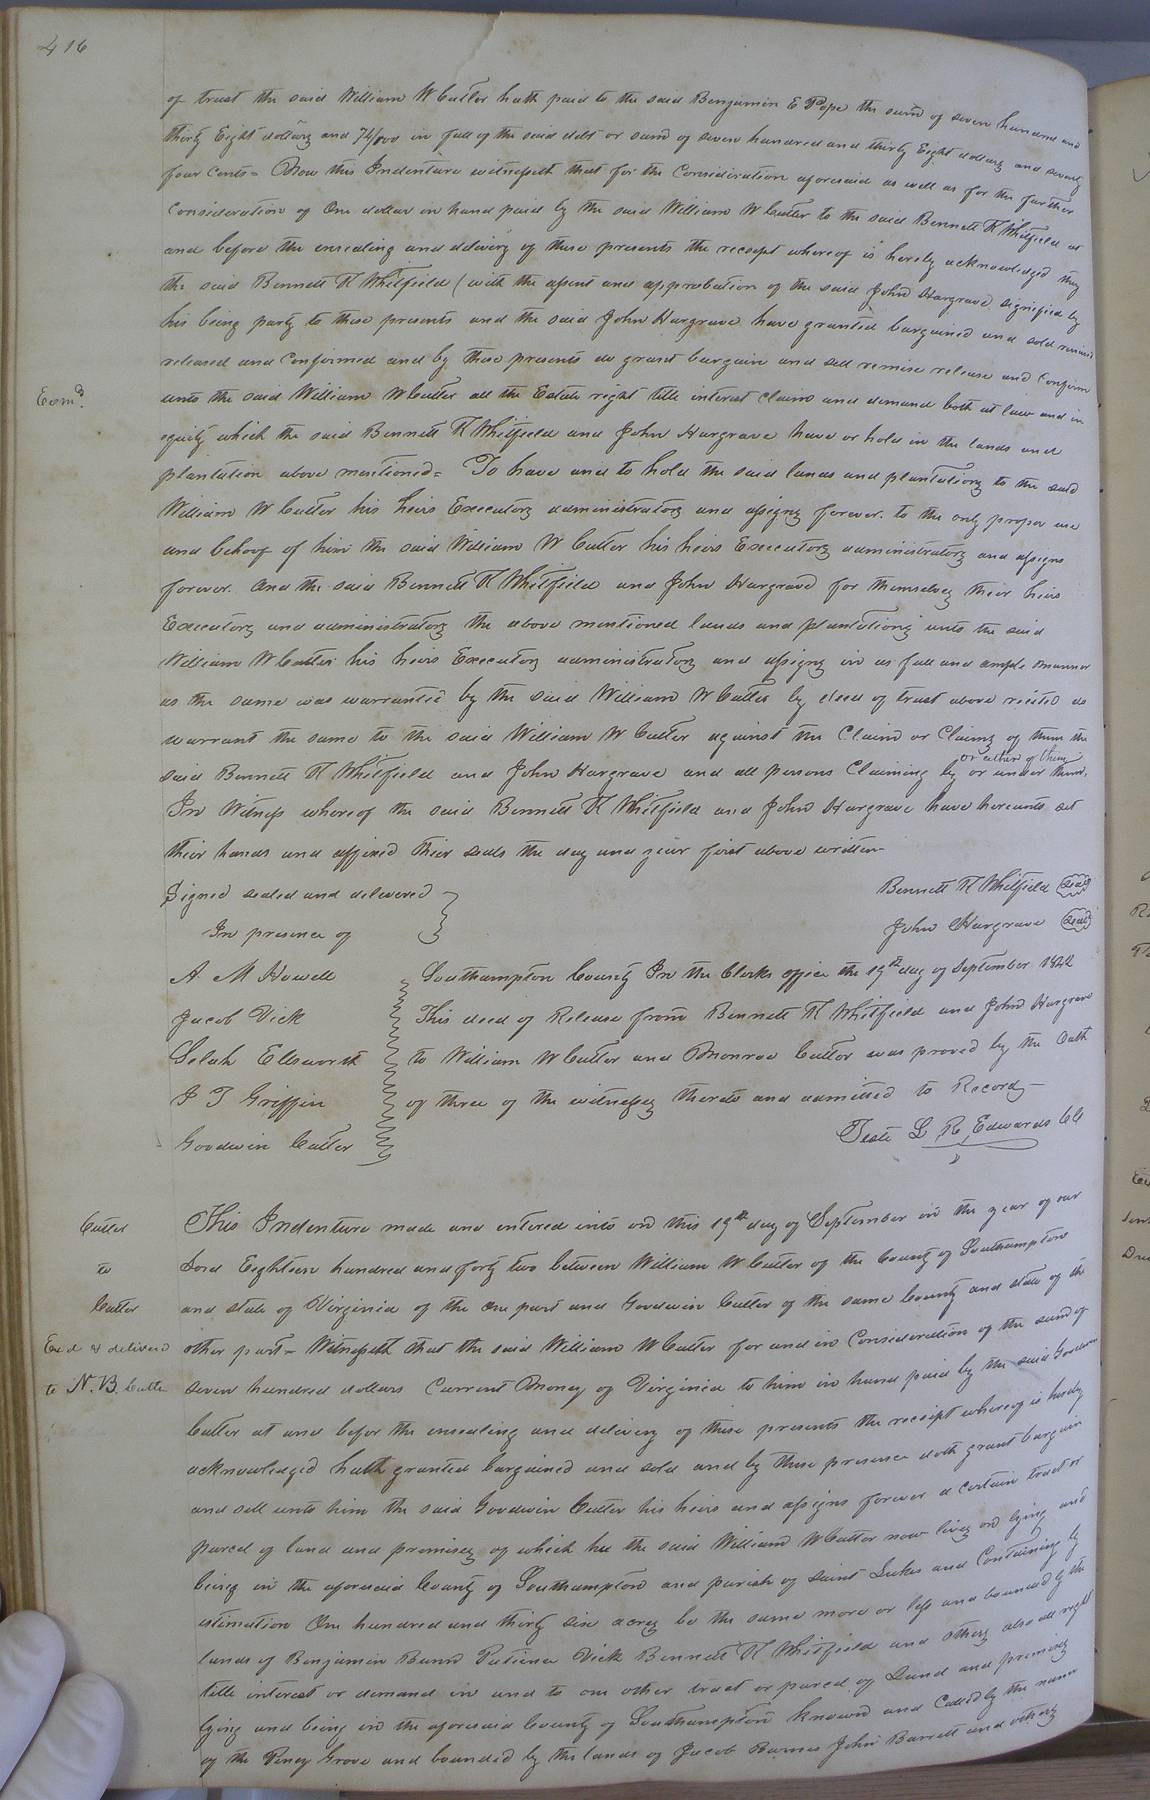 416
of trust the said William W Cutler hath paid to the said Benjamin E Pope the sum of seven hundred and
thirty Eight dollars and 74/100 in full of the said debt or sum of seven hundred and thirty Eight dollars and seventy
four Cents = Now this Indenture witnesseth that for the Consideration aforesaid as well as for the further
Consideration of One dollar in hand paid by the said William W Cutler to the said Bennett K Whitfield at
and before the ensealing and delivery of these presents the receipt whereof is hereby acknowledged they
the said Bennett K Whitfield (with the assent and approbation of the said John Hargrave signified by
his being party to these presents and the said John Hargrave have granted bargained and sold remised
released and Confirmed and by these presents do grant bargain and sell remise release and Confirm
Exmd.
unto the said William W Cutler all the Estate right title interest claims and demand both at law and in
equity which the said Bennett K Whitfield and John Hargrave have or hold in the lands and
plantation above mentioned = To have and to hold the said lands and plantations to the said
William W Cutler his heirs Executors administrators and assigns forever. to the only proper use
and behoof of him the said William W Cutler his heirs Executors administrators and assigns
forever. And the said Bennett K Whitfield and John Hargrave for themselves their heirs
Executors and administrators the above mentioned lands and plantations unto the said
William W Cutler his heirs Executors administrators and assigns in as full and ample manner
as the same was warranted by the said William W Cutler by deed of trust above recited do
warrant the same to the said William W Cutler against the Claim or Claims of them the
or either of them
said Bennett K Whitfield and John Hargrave and all persons Claiming by or under them.
In Witness whereof the said Bennett K Whitfield and John Hargrave have hereunto set
their hands and affixed their seals the day and year first above written
Signed sealed and delivered
Bennett K Whitfield Seal
In presence of
John Hargrave Seal
A. M Howell
Jacob Vick
Selah Ellsworth
J T Griffin
Goodwin Cutler
Southampton County In the Clerks office the 19th day of September 1842
This deed of Release from Bennett K Whitfield and John Hargrave
to William W Cutler and Monroe Cutler was proved by the Oath
of three of the witnesses thereto and admitted to Record
Teste L R Edwards CC
Cutler
to
Cutler
Exd & delivered
to N. B. Cutler
This Indenture made and entered into on this 19th day of September in the year of our
Lord Eighteen hundred and forty two between William W Cutler of the County of Southampton
and state of Virginia of the one part and Goodwin Cutler of the same County and state of the
other part = Witnesseth that the said William W Cutler for and in Consideration of the sum of
seven hundred dollars Current Money of Virginia to him in hand paid by the said Goodwin
Cutler at and before the ensealing and delivery of these presents the receipt whereof is hereby
acknowledged hath granted bargained and sold and by these presence doth grant bargain
and sell unto him the said Goodwin Cutler his heirs and assigns forever a certain tract or
parcel of land and premises of which he the said William W Cutler now lives on lying and
being in the aforesaid County of Southampton and parish of Saint Lukes and Containing by
estimation One hundred and thirty six acres be the same more or less and bounded by the
lands of Benjamin Bunn Patience Vick Bennett K Whitfield and others also all right
title interest or demand in and to one other tract or parcel of Land and premises
lying and being in the aforesaid County of Southampton known and Called by the name
of the Piney Grove and bounded by the lands of Jacob Barnes John Barrett and others